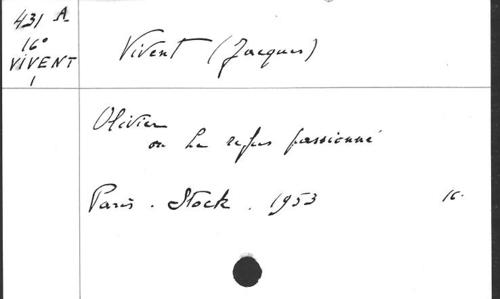 431 A
16°
VIVENT
1
Vivent (Jacques)
Olivier
ou Le refus passionné
Paris. Stock. 1953 16.